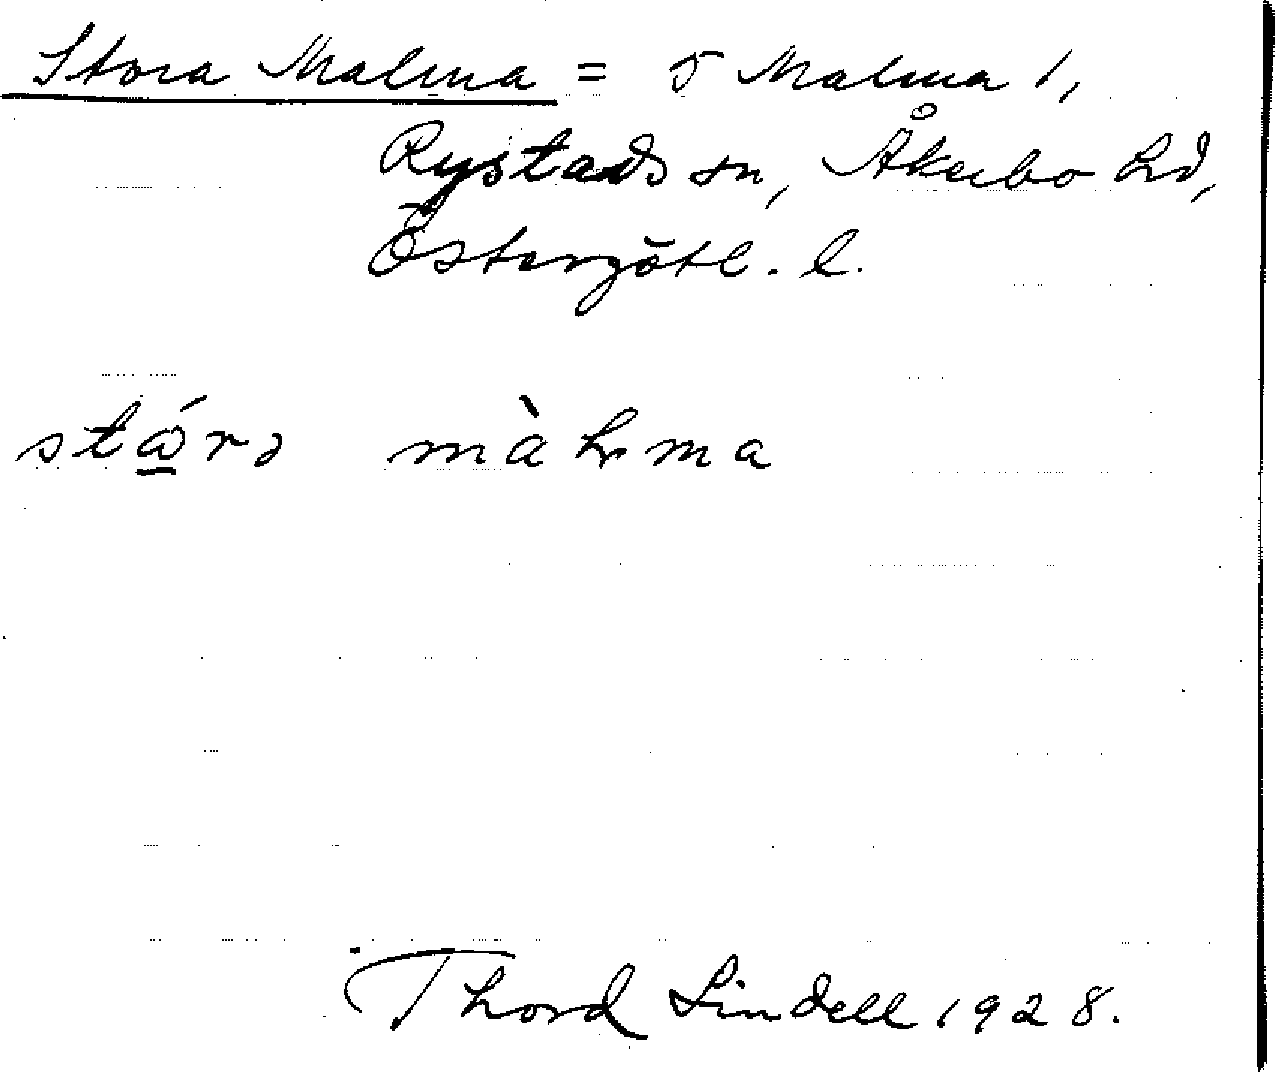 Stora Malma = 5 Malma 1,
Rystads sn, Åkerbo hd,
Östergötl. l.
màLma
Thord Lindell 1928.